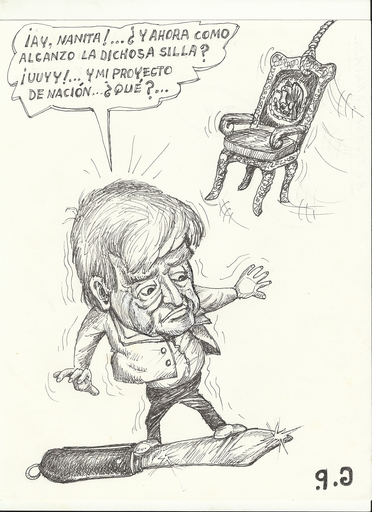 ¡AY, NANITA!...¿Y AHORA COMO
ALCANZO LA DICHOSA SILLA?
¡UUYY!... Y MI PROYECTO
DE NACIÓN...¿QUÉ?...
G.P.